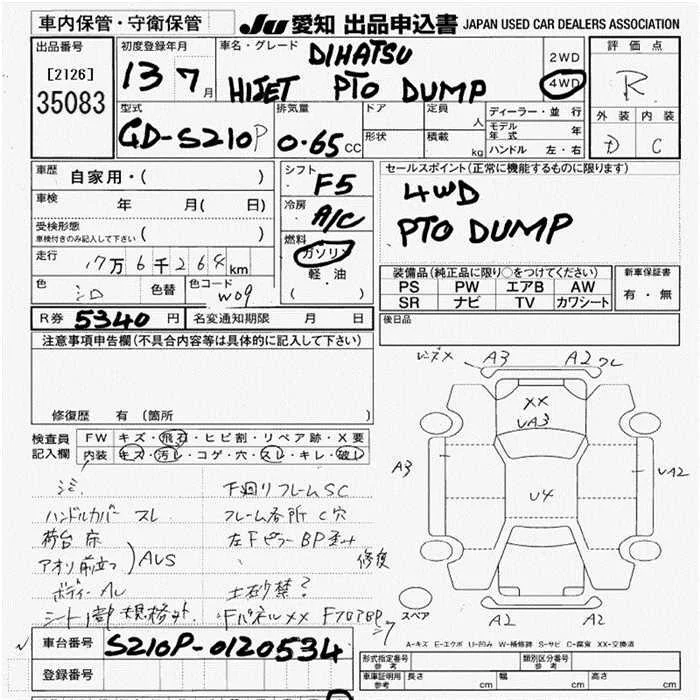 車内保管・守衛保管
JU 愛知 出品申込書 JAPAN USED CAR DEALERS ASSOCIATION
出品番号
[2126]
35083
初度登録年月
13 7 月
車名・グレード
DIHATSU
HIJET PTO DUMP
2WD
4WD
評価点
R
外装 内装
D C
型式
GD-S210P
排気量
0.65 CC
ドア
形状
定員
人
積載
kg
ディーラー・並行
モデル年式 年
ハンドル 左・右
車歴
自家用・( )
車検
年 月( 日)
受検形態
車検付きのみ記入して下さい ( )
走行
17万 6千 264 km
色
シロ
色替
色コード
W09
シフト
F5
冷房
A/C
燃料
ガソリン
軽・油
( )
セールスポイント(正常に機能するものに限ります)
4WD
PTO DUMP
装備品(純正品に限り○をつけてください)
PS PW エアB AW
SR ナビ TV カワシート
新車保証書
有・無
R券 5340 円
名変通知期限 月 日
後日品
注意事項申告欄(不具合内容等は具体的に記入して下さい)
修復歴 有(箇所
検査員記入欄
FW キズ・飛石・ヒビ割・リペア跡・X要
内装 キズ・汚レ・コゲ・穴・スレ・キレ・破レ
ハンドルカバー スレ
荷台 床
アオリ 前立つ
) AUS
下廻りフレームSC
フレーム各所 C穴
左FピラーBP
修復
Fパネル XX
レンズX A3 A2 ワレ
XX
UA3
A3
U4
UA2
スペア
A2 A2
A-キズ E-エクボ U-凹み W-補修跡 S-サビ C-腐食 XX-交換済
車台番号
S210P-0120534
登録番号
形式指定番号 参考
類別区分番号 参考
車庫証明用 参考
長さ cm
幅 cm
高さ cm